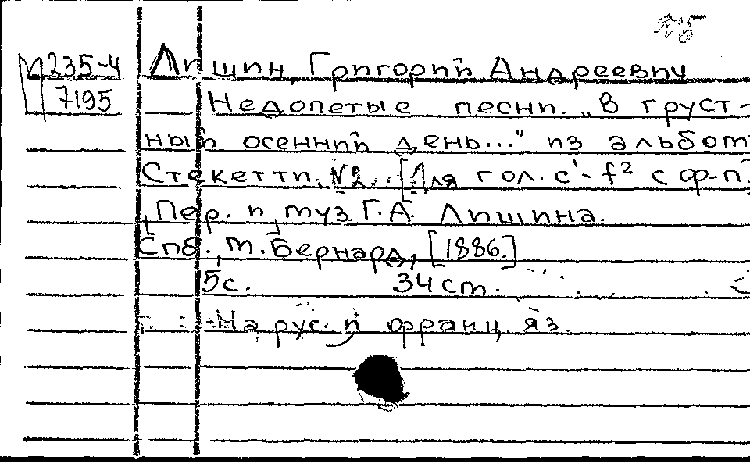 №5
М235-4 Лишин, Григорий Андреевич
7195 Недопетые песни. „В груст-
ный осенний день..." из альбом
Стекетти. №2... [Для гол. c¹-f² с ф-п.
Пер. и муз Г.А Лишина.
Спб., М. Бернард, [1886.]
5с. 34 ст.
На рус. и франц. яз.